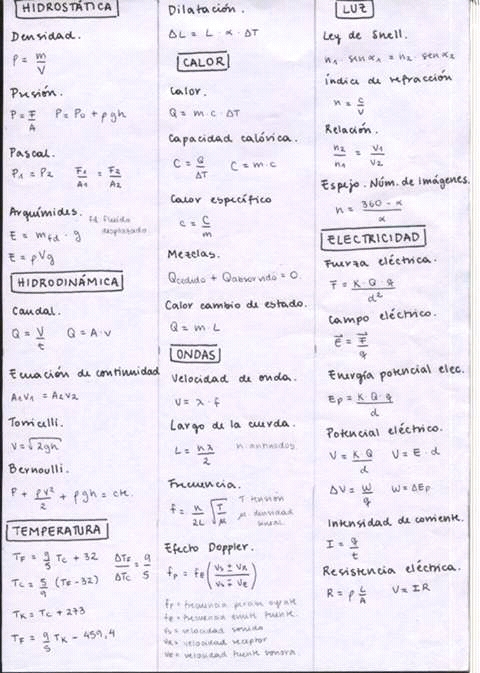 HIDROSTÁTICA
Densidad.
ρ = m/V
Presión.
P = F/A   P = P₀ + ρgh
Pascal.
P₁ = P₂   F₁/A₁ = F₂/A₂
Arquímides.
fd: fluido desplazado.
E = m_fd · g
E = ρVg
HIDRODINÁMICA
Caudal.
Q = V/t   Q = A·v
Ecuación de continuidad
A₁V₁ = A₂V₂
Torricelli.
V = √2gh
Bernoulli.
P + ρv²/2 + ρgh = cte.
TEMPERATURA
T_F = 9/5 T_C + 32   ΔT_F/ΔT_C = 9/5
T_C = 5/9 (T_F - 32)
T_K = T_C + 273
T_F = 9/5 T_K - 459,4
Dilatación.
ΔL = L · α · ΔT
CALOR
Calor.
Q = m · c · ΔT
Capacidad calórica.
C = Q/ΔT   C = m·c
Calor específico
c = C/m
Mezclas.
Qcedido + Qabsorvido = 0.
Calor cambio de estado.
Q = m · L
ONDAS
Velocidad de onda.
V = λ · f
Largo de la cuerda.
L = nλ/2   n: antinodos.
Frecuencia.
f = n/2L √T/μ   T: tensión
μ: densidad lineal.
Efecto Doppler.
f_p = f_e (V_s ± V_R / V_s ∓ V_e)
fp = frecuencia percibe oyente
fe = frecuencia emite fuente.
Vs = velocidad sonido
VR = velocidad receptor
Ve = velocidad fuente sonora.
LUZ
Ley de Snell.
n₁ · sen α₁ = n₂ · sen α₂
índice de refracción
n = c/v
Relación.
n₂/n₁ = V₁/V₂
Espejo. Núm. de imágenes.
n = 360 - α/α
ELECTRICIDAD
Fuerza eléctrica.
F = K·Q·q/d²
Campo eléctrico.
E⃗ = F⃗/q
Energía potencial elec.
Ep = K·Q·q/d
Potencial eléctrico.
V = K·Q/d   V = E·d
ΔV = W/q   W = ΔEp
Intensidad de corriente.
I = q/t
Resistencia eléctrica.
R = ρ L/A   V = IR